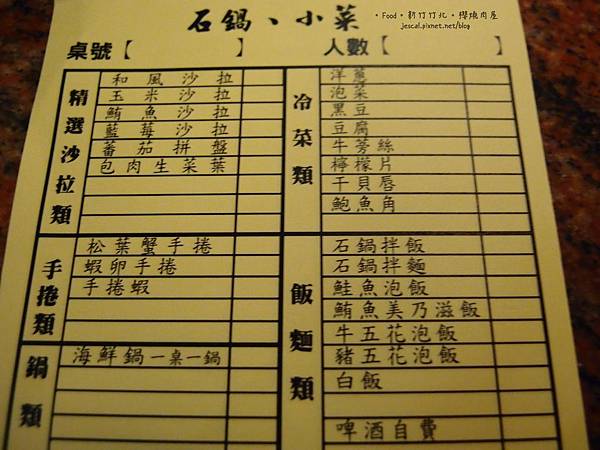 石鍋、小菜
•Food•新竹竹北•櫻燒肉屋
jescal.pixnet.net/blog
桌號【 】
人數【 】
精選沙拉類
和風沙拉
玉米沙拉
鮪魚沙拉
藍莓沙拉
蕃茄拼盤
包肉生菜葉
冷菜類
洋蔥
泡菜
黑豆
豆腐
牛蒡絲
檸檬片
干貝唇
鮑魚角
手捲類
松葉蟹手捲
蝦卵手捲
手捲蝦
鍋類
海鮮鍋一桌一鍋
飯麵類
石鍋拌飯
石鍋拌麵
鮭魚泡飯
鮪魚美乃滋飯
牛五花泡飯
豬五花泡飯
白飯
啤酒自費